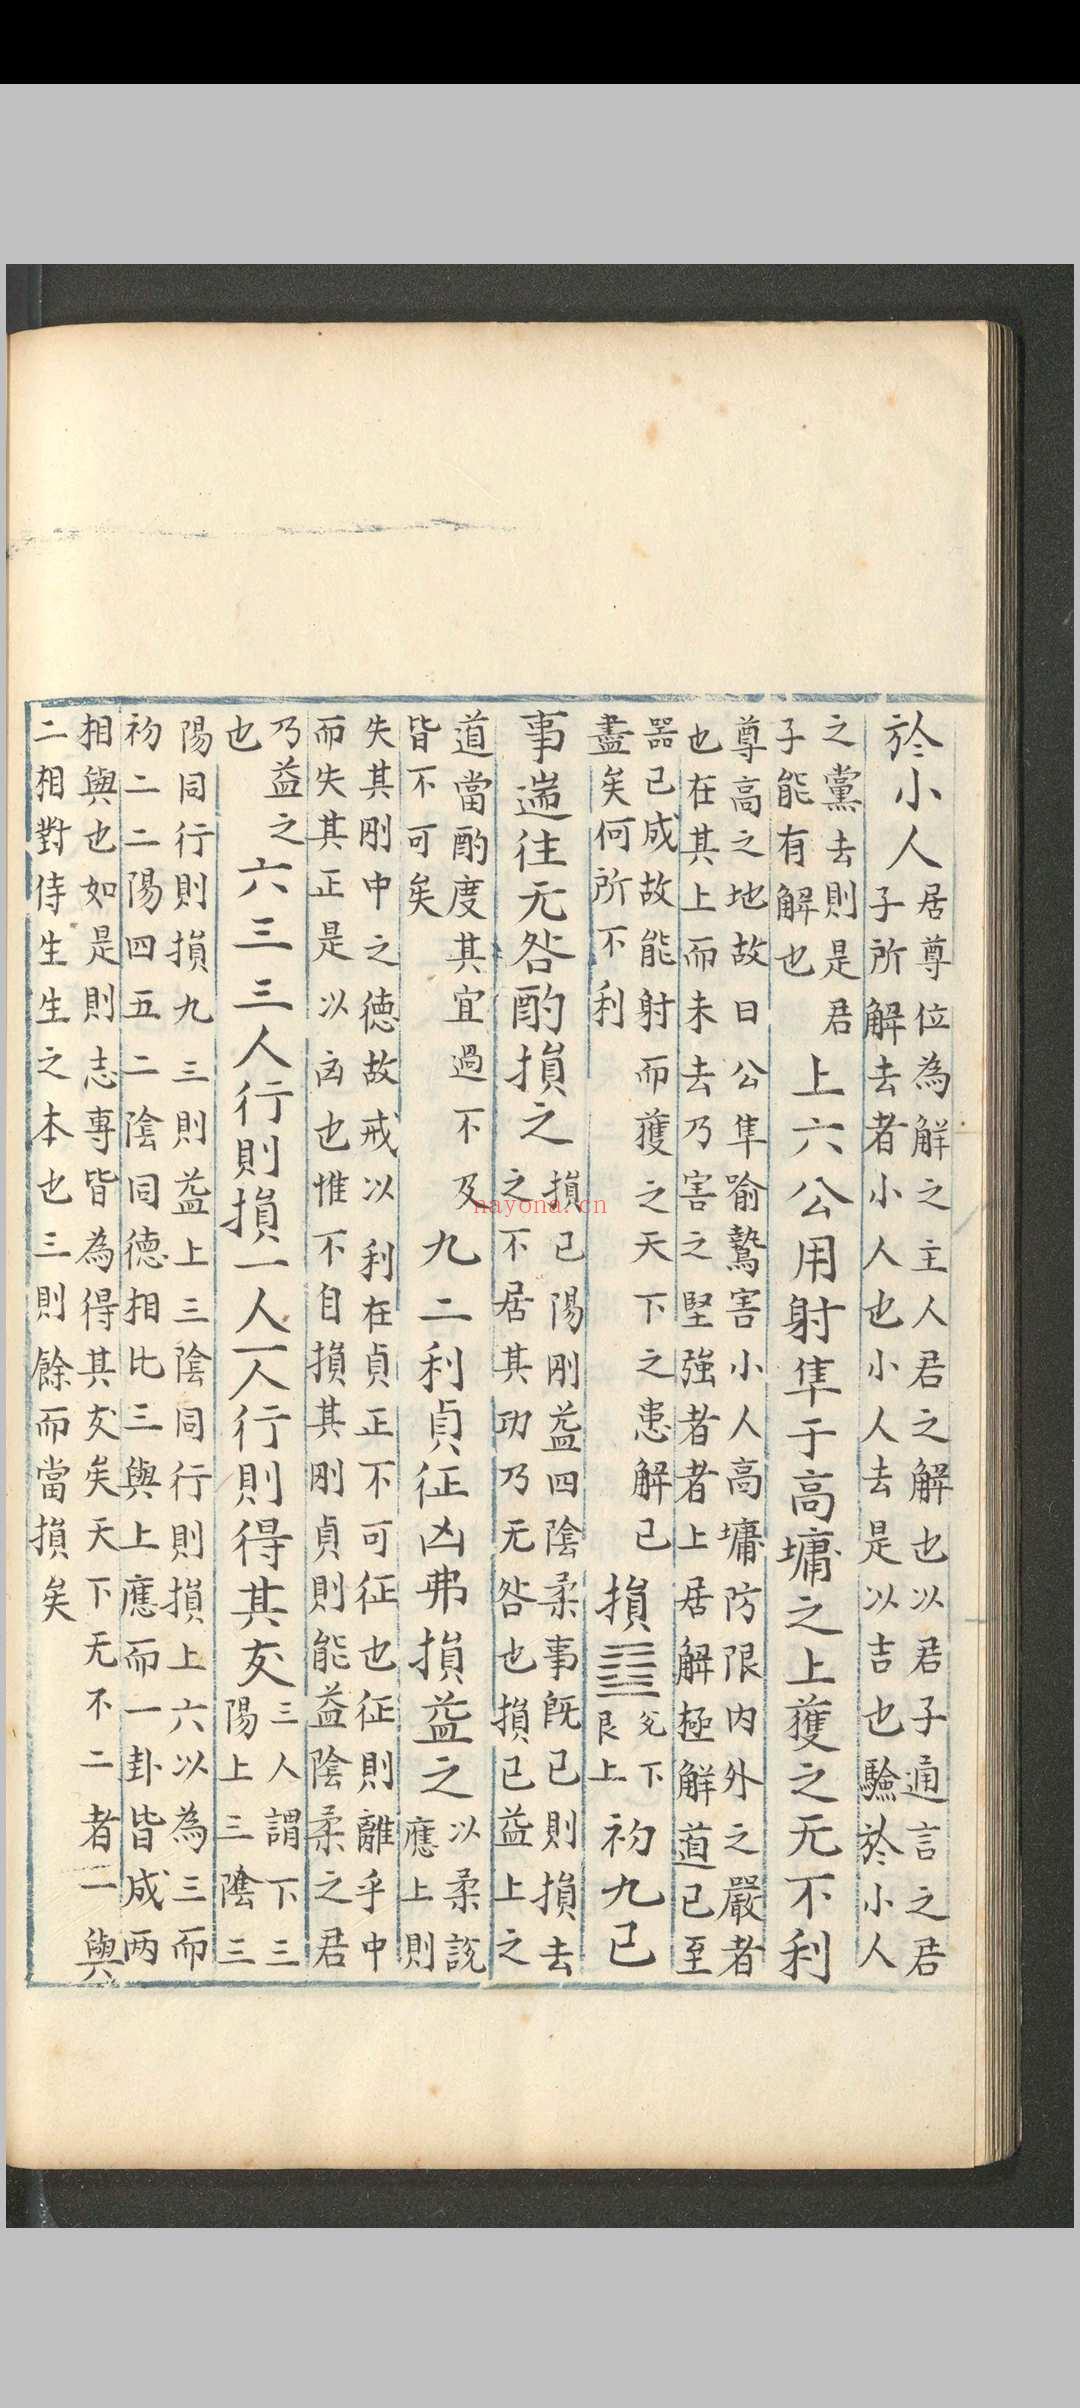 於小人
居尊位為解之主人君之解也以君子通言之君
子所解去者小人也小人去是以吉也驗於小人
之黨去則是君
子能有解也
上六公用射隼于高墉之上獲之无不利
尊高之地故曰公隼喻鷙害小人高墉防限内外之嚴者
也在其上而未去乃害之堅強者者上居解極解道已至
噐已成故能射而獲之天下之患解已
盡矣何所不利
損䷨
兌下
艮上
初九已
事遄往无咎酌損之
損已陽剛益四陰柔事既已則損去
之不居其功乃无咎也損已益上之
道當酌度其宜過不及
皆不可矣
九二利貞征凶弗損益之
以柔說
應上則
失其剛中之德故戒以利在貞正不可征也征則離乎中
而失其正是以凶也惟不自損其剛貞則能益陰柔之君
乃益之
也
六三三人行則損一人一人行則得其友
三人謂下三
陽上三陰三
陽同行則損九三則益上三陰同行則損上六以為三而
初二二陽四五二陰同德相比三與上應而一卦皆成两
相與也如是則志專皆為得其友矣天下无不二者一與
二相對侍生生之本也三則餘而當損矣
nayona.cn